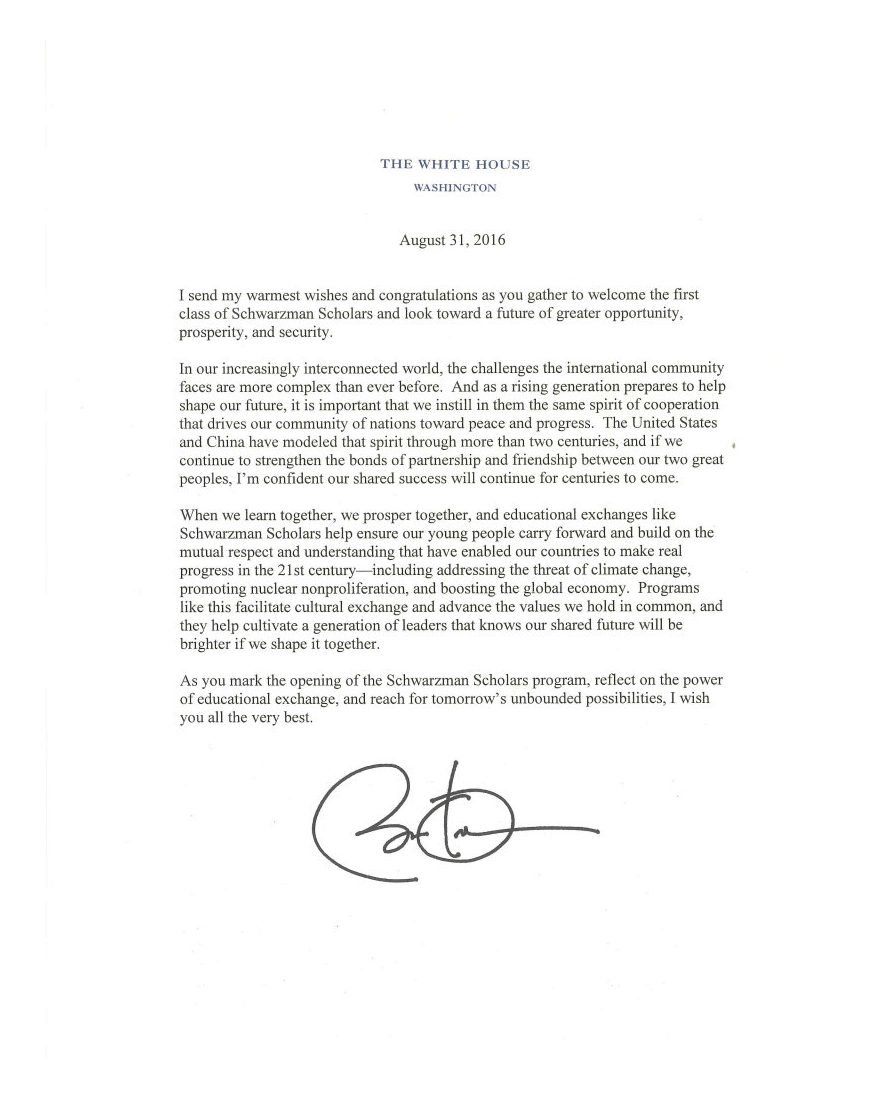 THE WHITE HOUSE
WASHINGTON
August 31, 2016
I send my warmest wishes and congratulations as you gather to welcome the first
class of Schwarzman Scholars and look toward a future of greater opportunity,
prosperity, and security.
In our increasingly interconnected world, the challenges the international community
faces are more complex than ever before.  And as a rising generation prepares to help
shape our future, it is important that we instill in them the same spirit of cooperation
that drives our community of nations toward peace and progress.  The United States
and China have modeled that spirit through more than two centuries, and if we
continue to strengthen the bonds of partnership and friendship between our two great
peoples, I'm confident our shared success will continue for centuries to come.
When we learn together, we prosper together, and educational exchanges like
Schwarzman Scholars help ensure our young people carry forward and build on the
mutual respect and understanding that have enabled our countries to make real
progress in the 21st century—including addressing the threat of climate change,
promoting nuclear nonproliferation, and boosting the global economy.  Programs
like this facilitate cultural exchange and advance the values we hold in common, and
they help cultivate a generation of leaders that knows our shared future will be
brighter if we shape it together.
As you mark the opening of the Schwarzman Scholars program, reflect on the power
of educational exchange, and reach for tomorrow's unbounded possibilities, I wish
you all the very best.